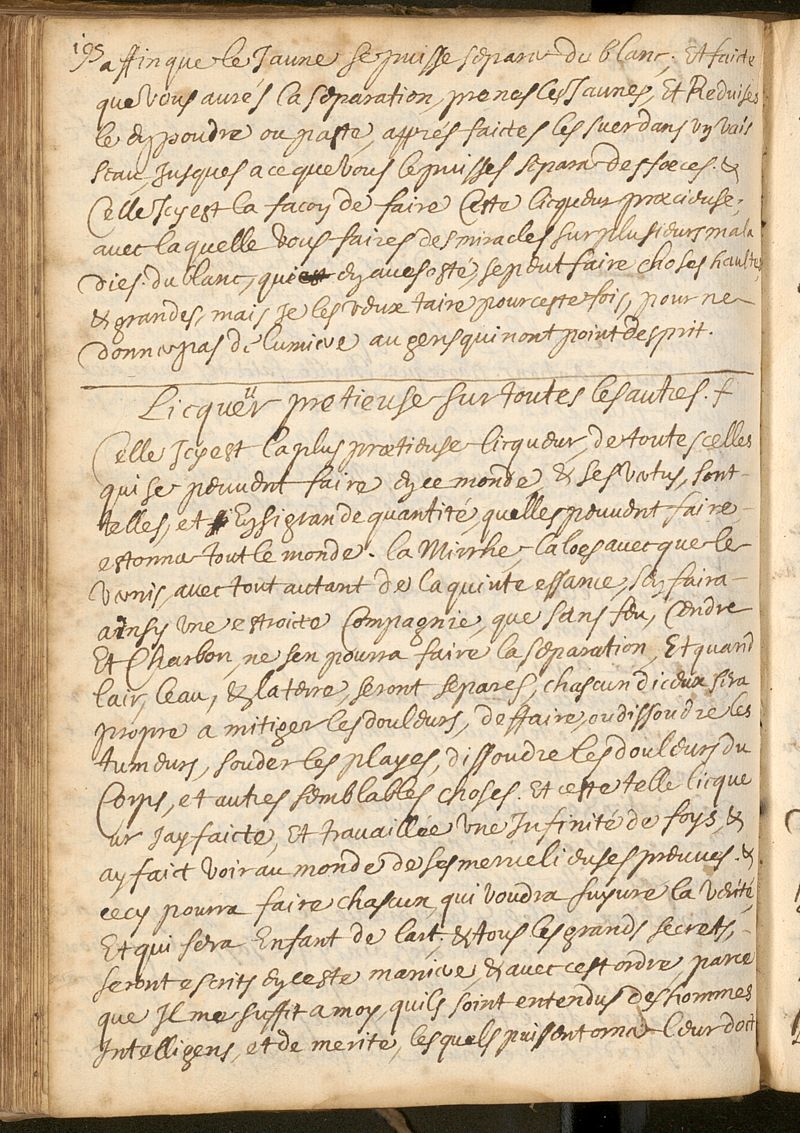 195
affin que le Jaune se puisse separer du blanc; Et faicte
que vous aurés la separation, prenes les Jaunes, Et Reduises
le en poudre ou paste, appres faictes les suer dans un vais
seau, Jusques a ce que vous le puisses separer des fœces. &
Celle Icy est la facon de faire Ceste licqueur præcieuse,
avec laquelle vous faires des miracles sur plusieurs mala
dies. du blanc, qui en aves osté, se peut faire choses haultes,
& grandes, mais Je les veux taire pour ceste fois, pour ne
donner pas de lumiere au gens qui nont point desprit.
Licqueür pretieuse sur toutes les autres. f
Celle Icy est la plus prætieuse licqueur, de toutes celles
qui se peuuent faire en ce monde, & ses vertus, sont
telles, et En si grande quantité, quelles peuuent faire
estonner tout le monde. la Mirrhe, laloes avecque le
vernis, avec tout autant de la quinte essance, sen faira
ainsy une estroicte Compagnie, que sans feu, Cendre
Et Charbon, ne sen pourra faire la separation, Et quand
lair, leau, & la terre, seront separes, chascun diceux sera
propre a mitiger les douleurs, deffaire, ou dissoudre les
tumeurs, souder les playes, dissoudre les douleurs du
Corps, et autres semblables choses. Et ceste telle licque
ur Jay faicte, Et travaillée une Infinité de foys, &
ay faict voir au monde de ses merueilieuses preuues. &
cecy pourra faire chascun, qui voudra suyure la verité,
Et qui sera Enfant de lart; & tous les grands secrets,
seront escrits en ceste maniere, & avec cest ordre, parce
que Il me suffit a moy, quils soint entendus des hommes
Intelligens, et de merite, lesquels puissent orner leur doct